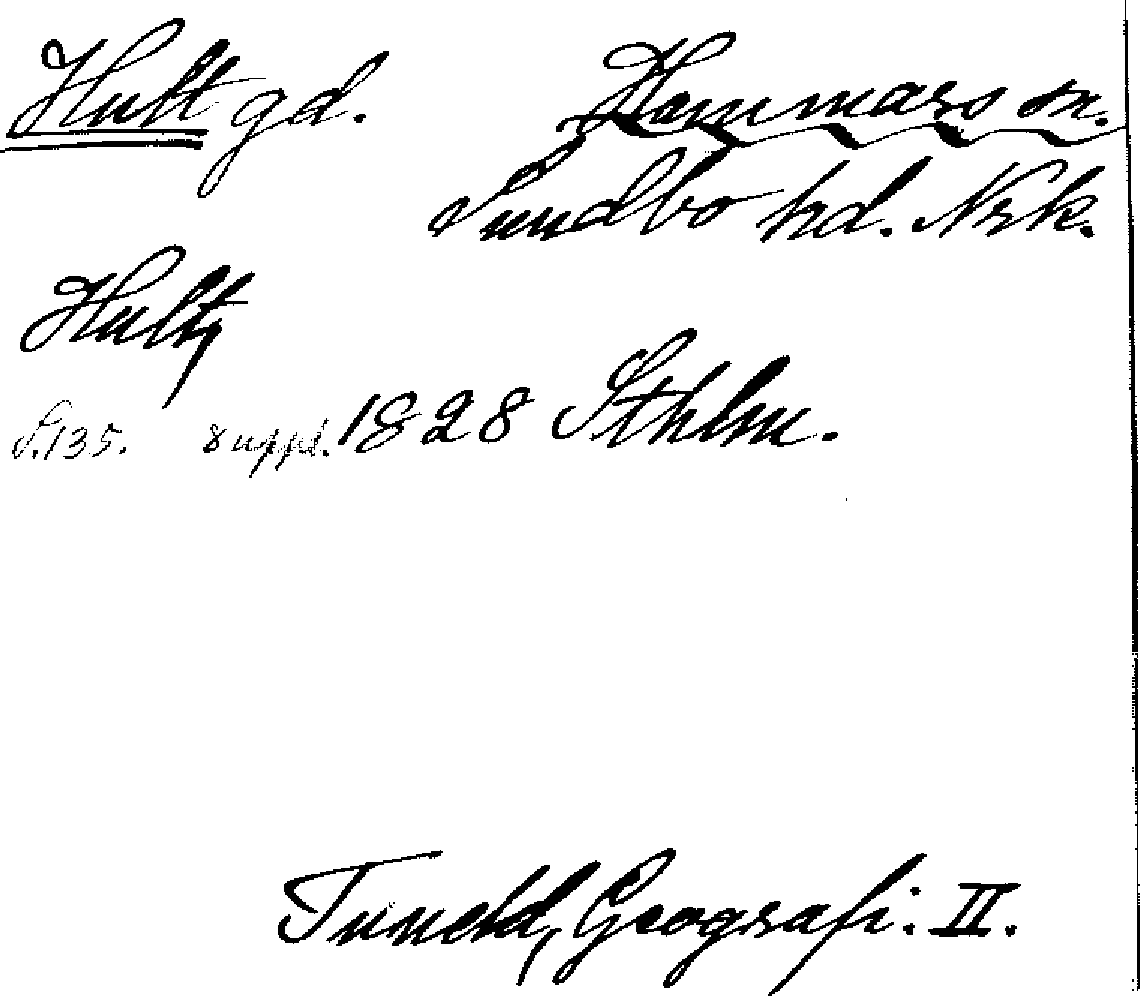 Hult gd. Hammars sn.
Sundbo hd. Nrk.
Hult,
S. 135. 8 uppl. 1828 Sthlm.
Tuneld, Geografi. II.